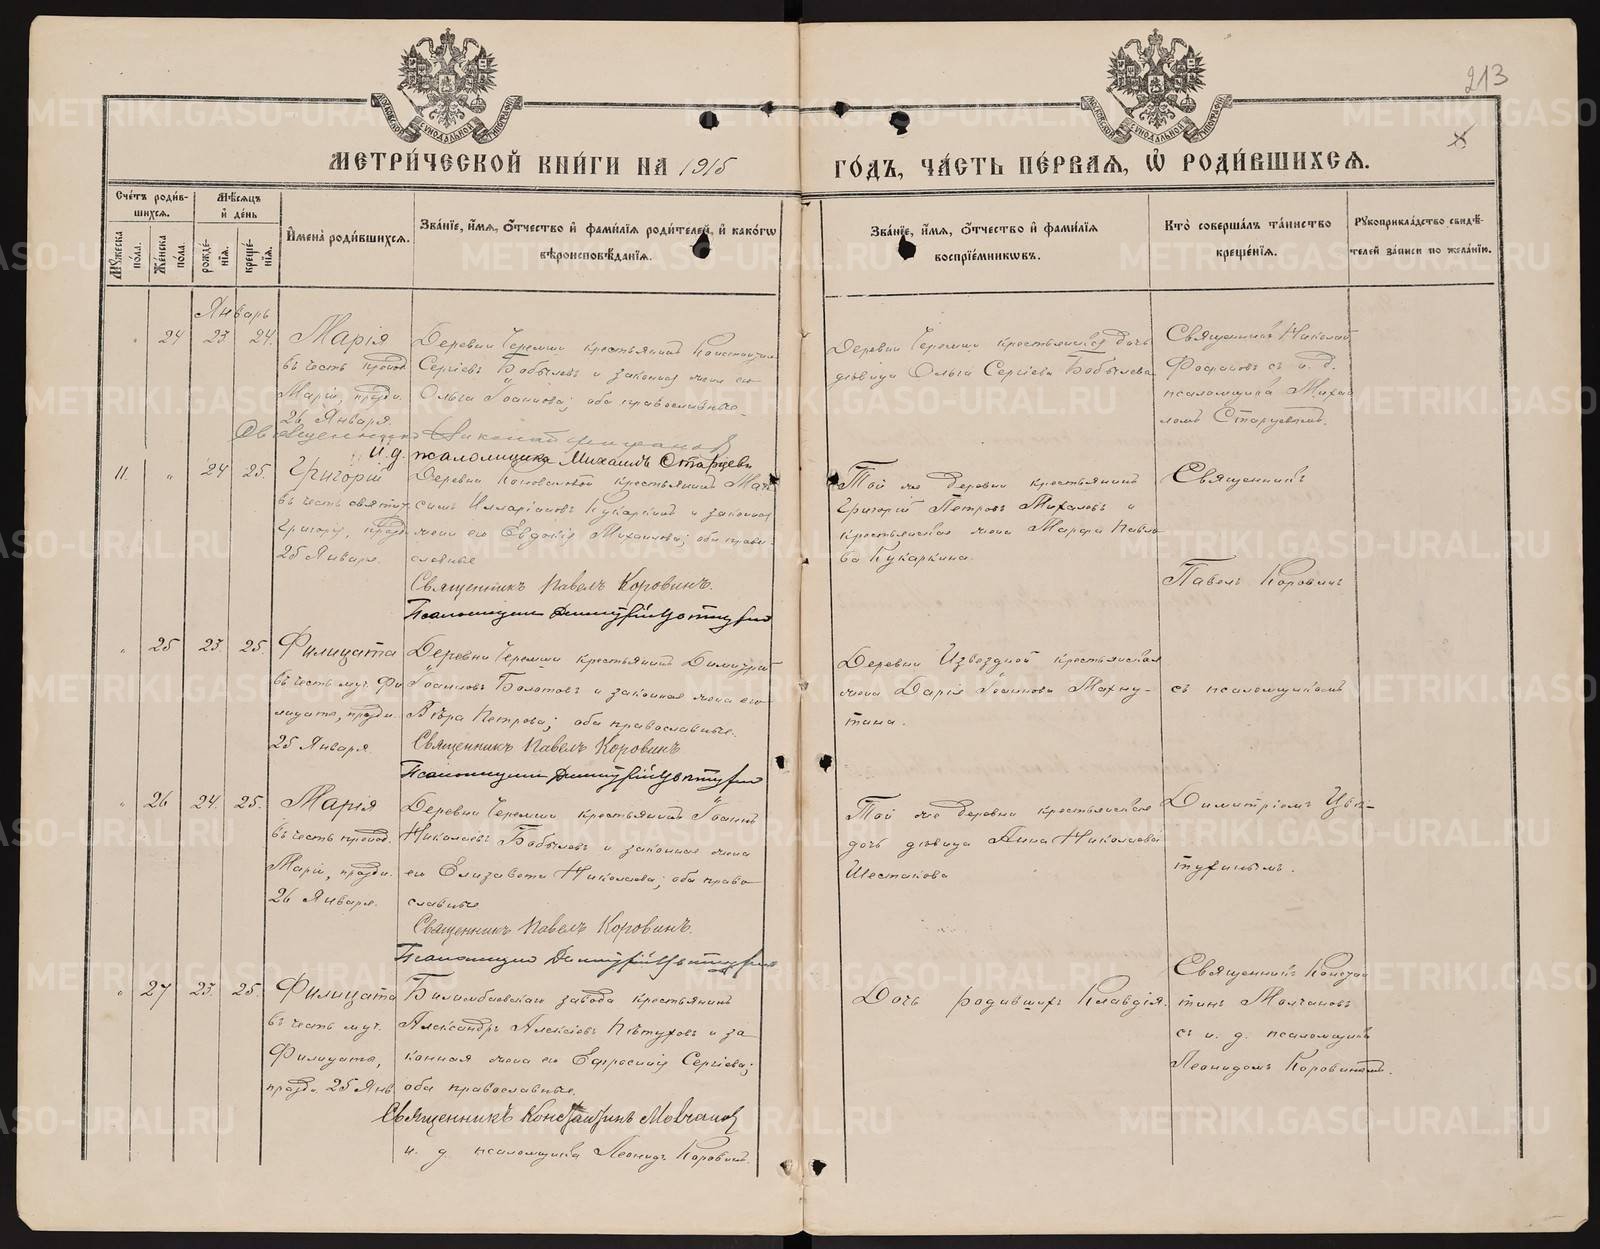 213
МЕТРИ́ЧЕСКОЙ КНИ́ГИ НА 1915 ГО́ДЪ, ЧА́СТЬ ПЕ́РВАЯ, Ѡ҆ РОДИ́ВШИХСЯ.
Сче́тъ роди́в-
шихся.
Мѣ́сяцъ
и҆ де́нь
Му́жеска
по́ла.
Же́нска
по́ла.
рожде́-
нїя.
креще́-
нїя.
И҆мена̀ роди́вшихся.
Зва́нїе, и҆́мя, ѻ҆́тчество и҆ фами́лїя роди́телей, и҆ како́гѡ
вѣроисповѣ́данїя.
Зва́нїе, и҆́мя, ѻ҆́тчество и҆ фами́лїя
воспрїе́мникѡвъ.
Кто̀ соверша́лъ та́инство
креще́нїя.
Рꙋкоприкла́дство свидѣ́-
телей за́писи по жела́нїю.
Январь
" 24 23 24. Марія
въ честь препод.
Маріи, праздн.
26 Января.
Деревни Черемши крестьянинъ Константинъ
Сергіевъ Бобылевъ и законная жена его
Ольга Іоаннова; оба православные.
Деревни Черемши крестьянская дочь
дѣвица Ольга Сергіева Бобылева
Священникъ Николай
съ и. д.
псаломщика Михаи
ломъ Старцевымъ.
Священникъ Николай
и. д. псаломщика Михаилъ Старцевъ
11. " 24 25. Григорій
въ честь святит.
Григорія, праздн.
25 Января.
Деревни Коноваловой крестьянинъ Мак
симъ Илларіоновъ Кукаркинъ и законная
жена его Евдокія Михаилова; оба право-
славные
Священникъ Павелъ Коровинъ.
Псаломщикъ Димитрій Цвѣтухинъ
Той же деревни крестьянинъ
Григорій Петровъ Михалевъ и
крестьянская жена Марфа Павло-
ва Кукаркина.
Священникъ
Павелъ Коровинъ
" 25 23. 25. Филицата
въ честь муч. Фи
лицаты, праздн.
25 Января
Деревни Черемши крестьянинъ Димитрій
Іоанновъ Болотовъ и законная жена его
Вѣра Петрова; оба православные.
Священникъ Павелъ Коровинъ
Псаломщикъ Димитрій Цвѣтухинъ
Деревни Извездной крестьянская
жена Дарія Іоаннова Махну-
тина.
съ псаломщикомъ
" 26 24. 25. Марія
въ честь препод.
Маріи, праздн.
26 Января.
Деревни Черемши крестьянинъ Іоаннъ
Николаевъ Бобылевъ и законная жена
его Елизавета Николаева; оба право
славные
Священникъ Павелъ Коровинъ.
Псаломщикъ Димитрій Цвѣтухинъ
Той же деревни крестьянская
дочь дѣвица Анна Николаева
Шестакова
Димитріемъ Цвѣ-
тухинымъ.
" 27 23. 25. Филицата
въ честь муч.
Филицаты,
праздн. 25 Янв
Билимбаевскаго завода крестьянинъ
Александръ Алексіевъ Пѣтуховъ и за
конная жена его Ефросинія Сергіева;
оба православные.
Священникъ Константинъ Молчановъ
и. д. псаломщика Леонидъ Коровинъ.
Дочь родившихъ Клавдія.
Священникъ Констан
тинъ Молчановъ
съ и. д. псаломщика
Леонидомъ Коровинымъ.
METRIKI.GASO-URAL.RU